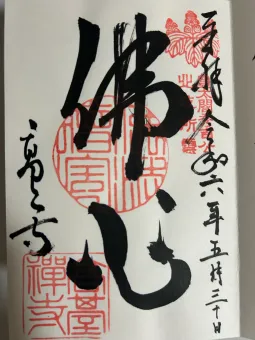 奉拝 令和六年五月三十日
佛心
高台寺
高臺
禪寺